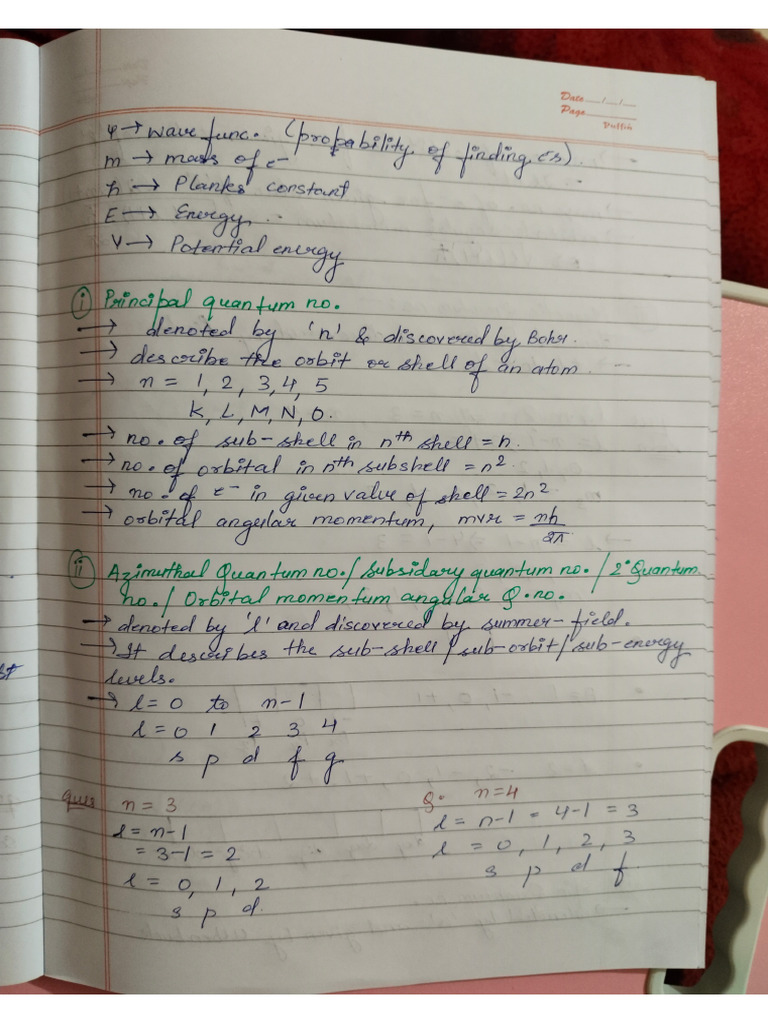 Date___/___/___
Page
Puffin
ψ → wave func. (probability of finding e⁻s).
m → mass of e⁻
ħ → Planks constant
E → Energy
V → Potential energy
(i) Principal quantum no.
→ denoted by 'n' & discovered by Bohr.
→ describe the orbit or shell of an atom
→ n = 1, 2, 3, 4, 5
K, L, M, N, O.
→ no. of sub-shell in nth shell = n.
→ no. of orbital in nth subshell = n².
→ no. of e⁻ in given value of shell = 2n²
→ orbital angular momentum, mvr = nh/2π
(ii) Azimuthal Quantum no./ subsidary quantum no. / 2° Quantum
no./ Orbital momentum angular Q. no.
→ denoted by 'l' and discovered by summer-field.
→ It describes the sub-shell/sub-orbit/sub-energy
levels.
→ l = 0 to n-1
l = 0 1 2 3 4
s p d f g
Ques n = 3
l = n-1
= 3-1 = 2
l = 0, 1, 2
s p d.
Q. n=4
l = n-1 = 4-1 = 3
l = 0, 1, 2, 3
s p d f